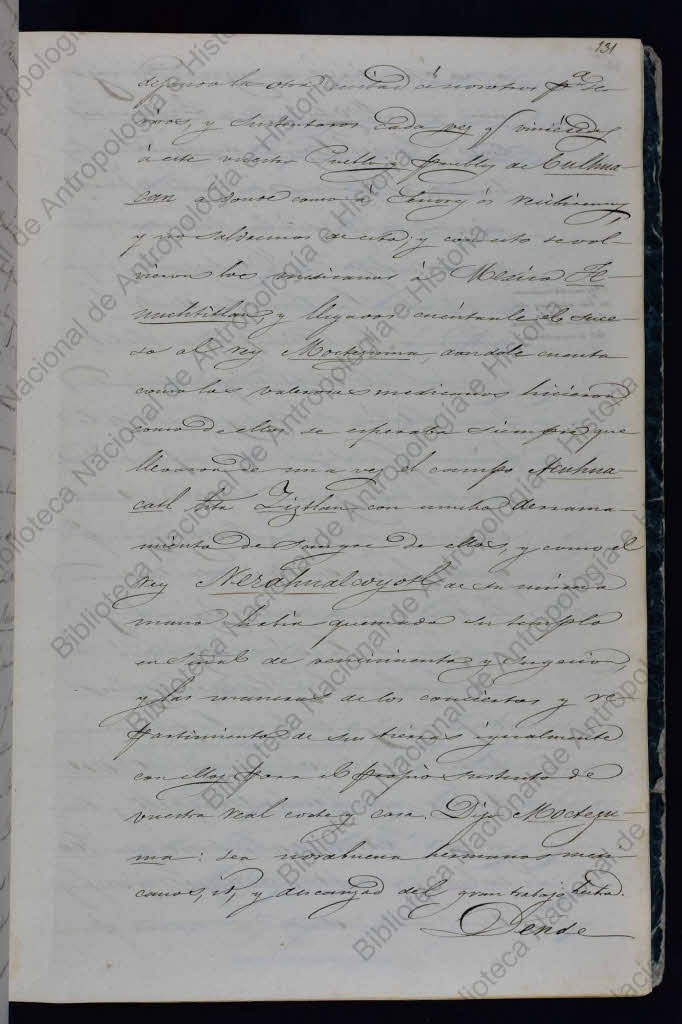 131
la otra mitad á nosotros p.ª ser-
viros, y sustentaros cada vez q.
á este vuestro Pueblo y pueblos de Culhua-
can á donde como á os
y no salieemos de esto; y con esto se vol-
vieron los mexicanos á Mexico Te-
nuchtitlan, y llegados cuéntanle el suce-
so al rey Moctezuma, dandole cuenta
como los valerosos mexicanos hicieron
como de ellos se esperaba siempre que
llevaron de una vez el campo Acuhua-
catl hta Tiztlan con mucho derrama-
miento de sangre de ellos, y como el
rey Nezahualcoyotl de su misma
mano habia quemado su templo
en señal de vencimiento y sugecion
y las maneras de los conciertos y re-
partimiento de sus tierras igualmente
con ellos para el propio sustento de
vuestra real corte y casa. Dijo Moctezu-
ma: sea norabuena hermanos mexi-
canos, id, y descanzad del gran trabajo
Dende
Biblioteca Nacional de Antropología e Historia